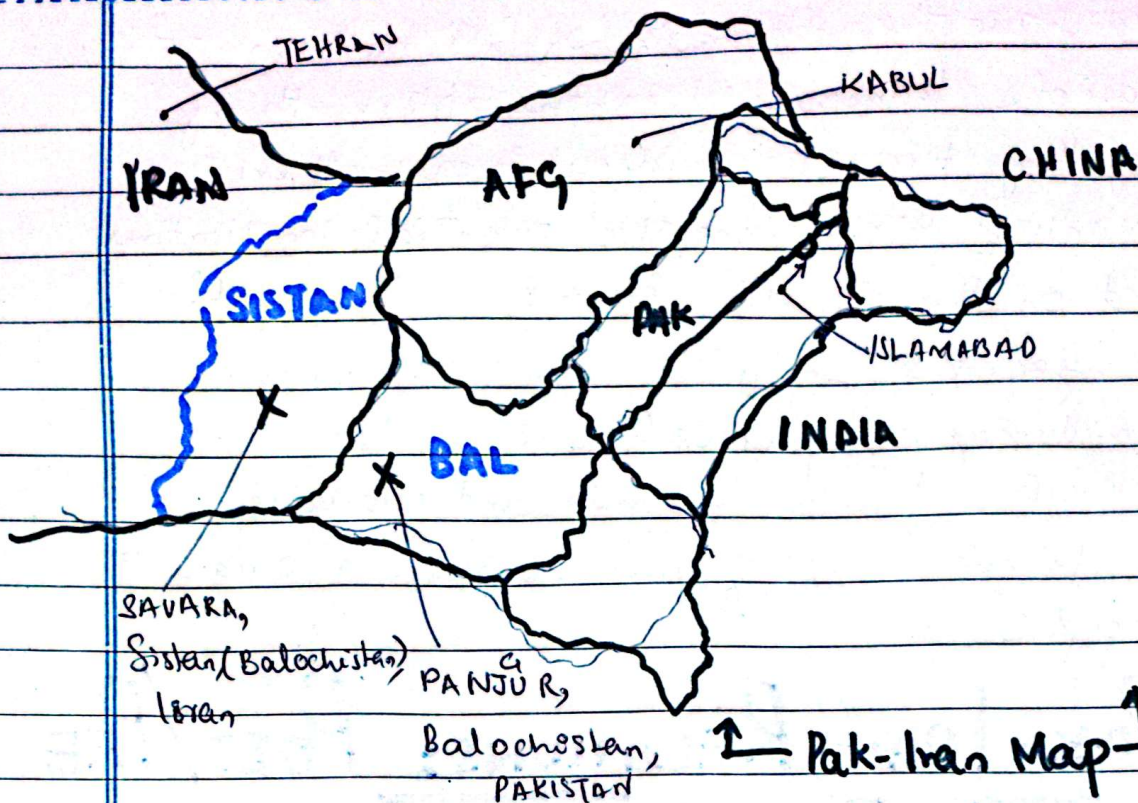 TEHRAN
KABUL
IRAN
AFG
CHINA
SISTAN
PAK
ISLAMABAD
BAL
INDIA
SAVARA,
Sistan(Balochistan)
Iran
PANJGUR,
Balochistan,
PAKISTAN
Pak-Iran Map